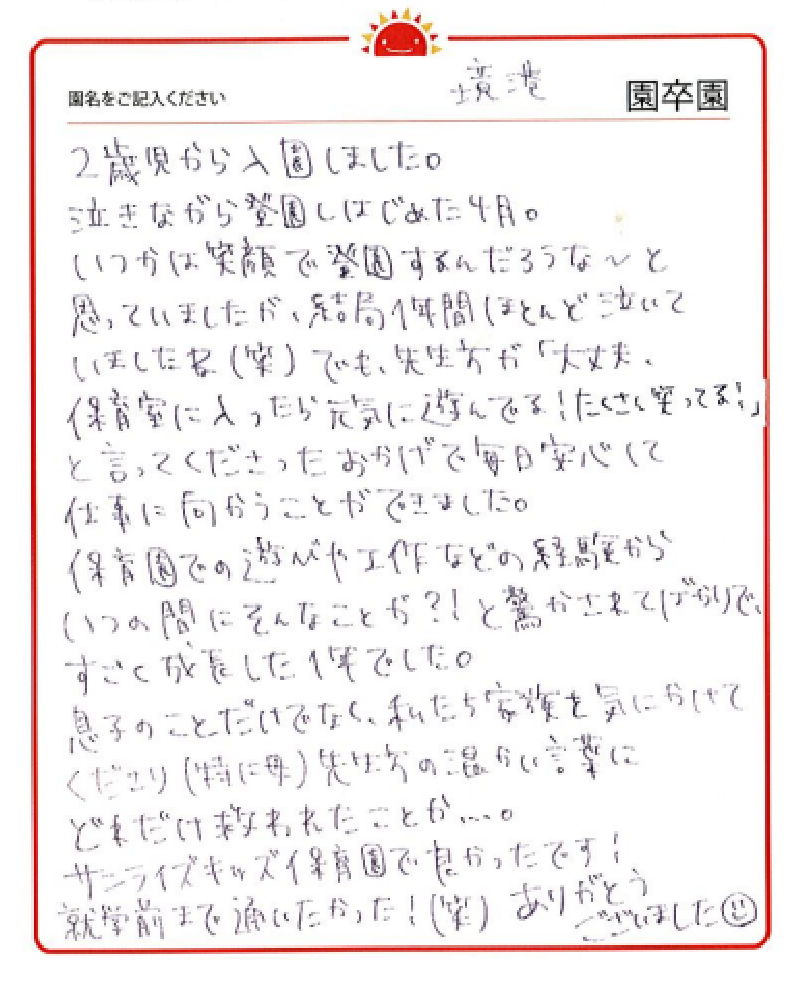 園名をご記入ください 境港 園卒園
2歳児から入園しました。
泣きながら登園しはじめた4月。
いつかは笑顔で登園するんだろうな～と
思っていましたが、結局1年間ほとんど泣いて
いましたね(笑)でも、先生方が「大丈夫、
保育室に入ったら元気に遊んでる!たくさん笑ってる!」
と言ってくださったおかげで毎日安心して
仕事に向かうことができました。
保育園での遊びや工作などの経験から
いつの間にそんなことが?!と驚かされてばかりで、
すごく成長した1年でした。
息子のことだけでなく、私たち家族を気にかけて
くださり(特に母)先生方の温かい言葉に
どれだけ救われたことか…。
サンライズキッズ保育園で良かったです!
就学前まで通いたかった!(笑) ありがとう
ございました☺